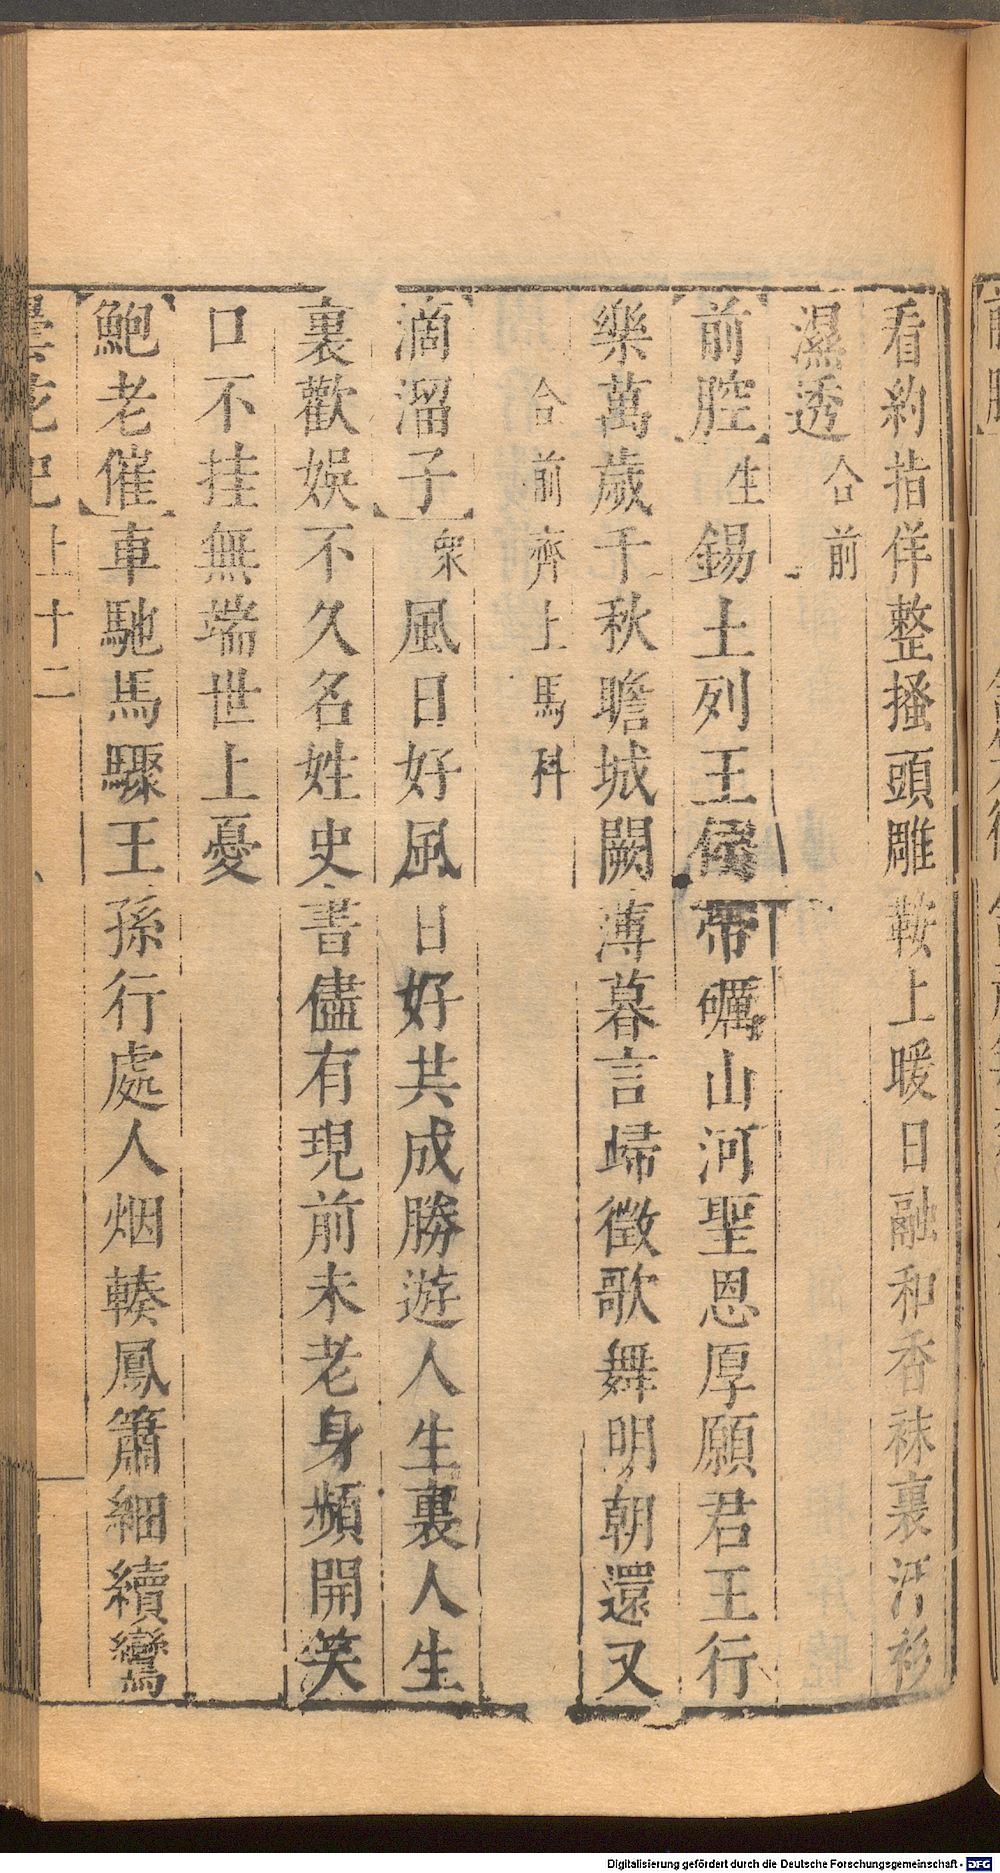 看約指佯整搔頭雕鞍上暖日融和香袜裏汚衫
濕透合前
前腔生錫土列王侯帶礪山河聖恩厚願君王行
樂萬歲千秋瞻城闕薄暮言歸徵歌舞明朝還又
合前齊上馬科
滴溜子衆風日好風日好共成勝遊人生裏人生
裏歡娛不久名姓史書儘有現前未老身頻開笑
口不挂無端世上憂
鮑老催車馳馬驟王孫行處人烟輳鳳簫細續鸞
曇花記上十二
Digitalisierung gefördert durch die Deutsche Forschungsgemeinschaft - DFG